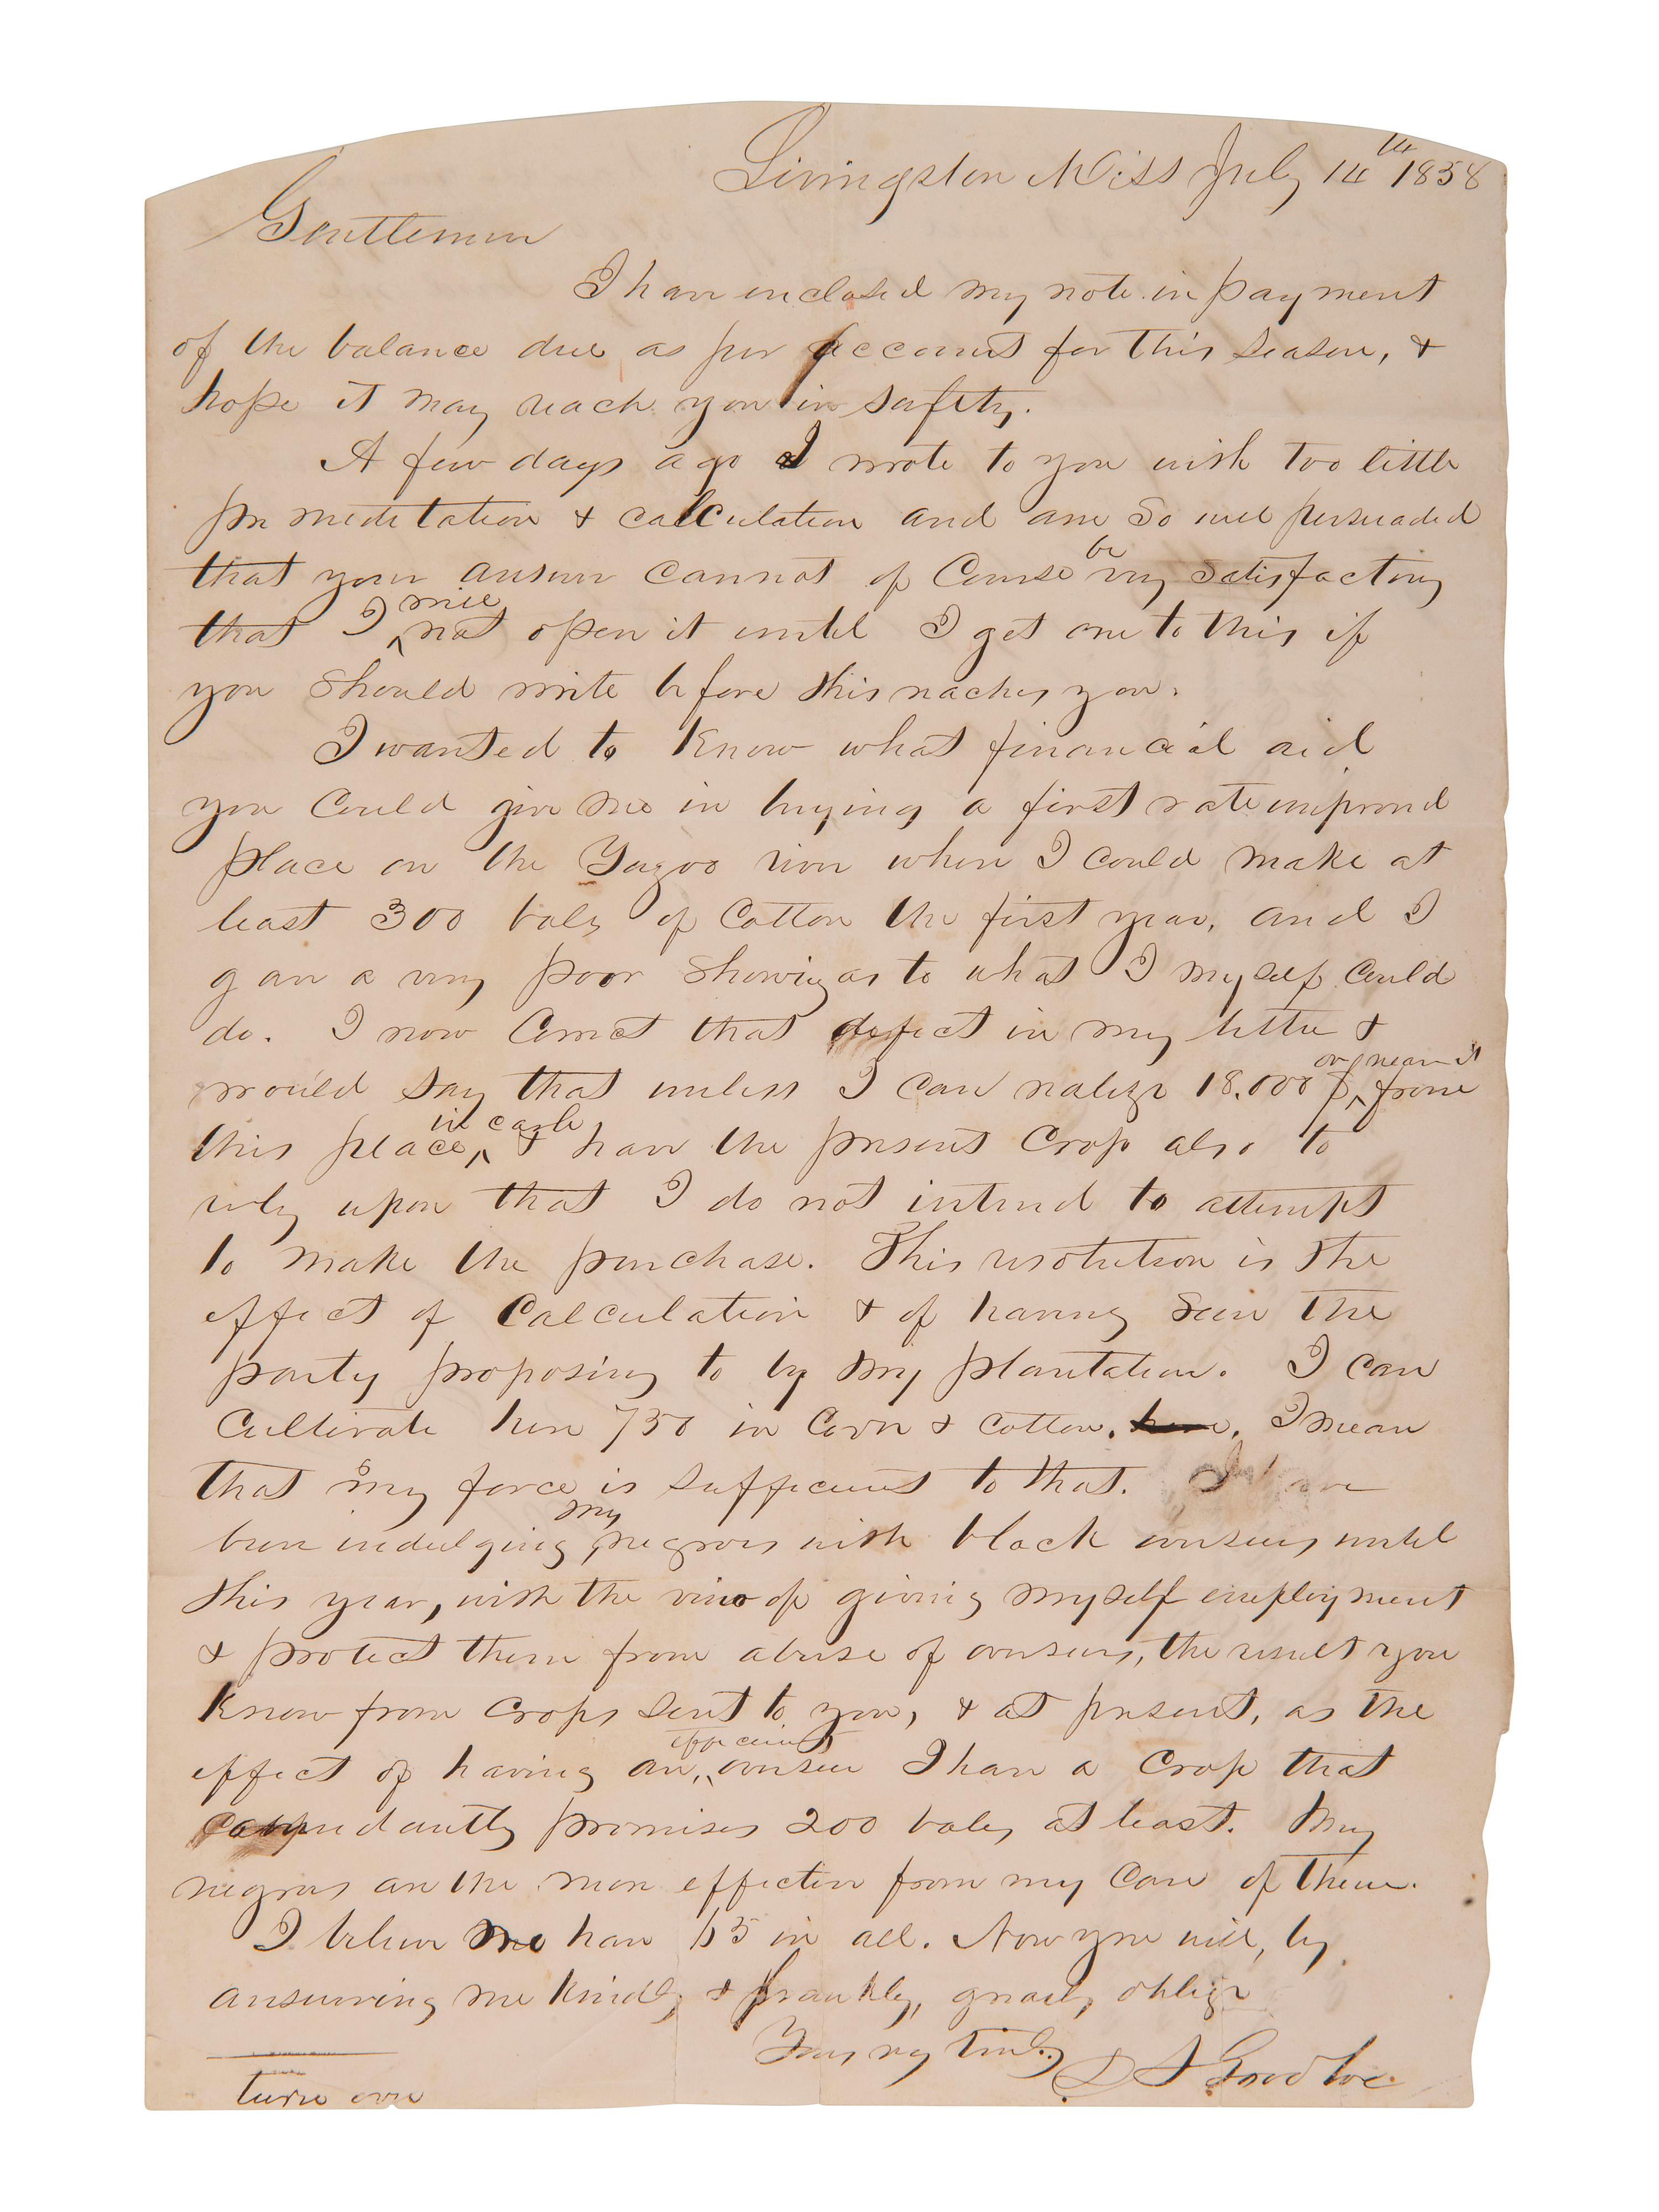 Livingston Miss July 14th 1858
Gentlemen
I have enclosed my note in payment
of the balance due as per account for this season, &
hope it may reach you in safety.
A few days ago I wrote to you with too little
premeditation & calculation and am so well persuaded
that your answer cannot of Course be very satisfactory
that I will not open it until I get one to this if
you should write before this reaches you.
I wanted to know what financial aid
you could give me in buying a first rate improved
place on the Yazoo river where I could make at
least 300 bales of Cotton the first year, and I
gave a very poor showing as to what I myself could
do. I now Correct that defect in my letter &
would say that unless I can realize 18.000 $ or near it from
this place, in cash & have the present Crop also to
rely upon that I do not intend to attempt
to make the purchase. This resolution is the
effect of Calculation & of having seen the
party proposing to by my plantation. I can
Cultivate here 750 in Corn & cotton. here. I mean
that my force is sufficient to that. I have
been indulging my negroes with black overseers until
this year, with the view of giving myself employment
& protect them from abuse of overseers, the result you
know from crops sent to you, & at present, as the
effect of having an, efficient overseer I have a Crop that
abundantly promises 200 bales at least. My
negroes are the more effective from my care of them.
I believe we have 65 in all. Now you will, by
answering me kindly & frankly, greatly oblige
Yours very truly D S Goodloe
turn over